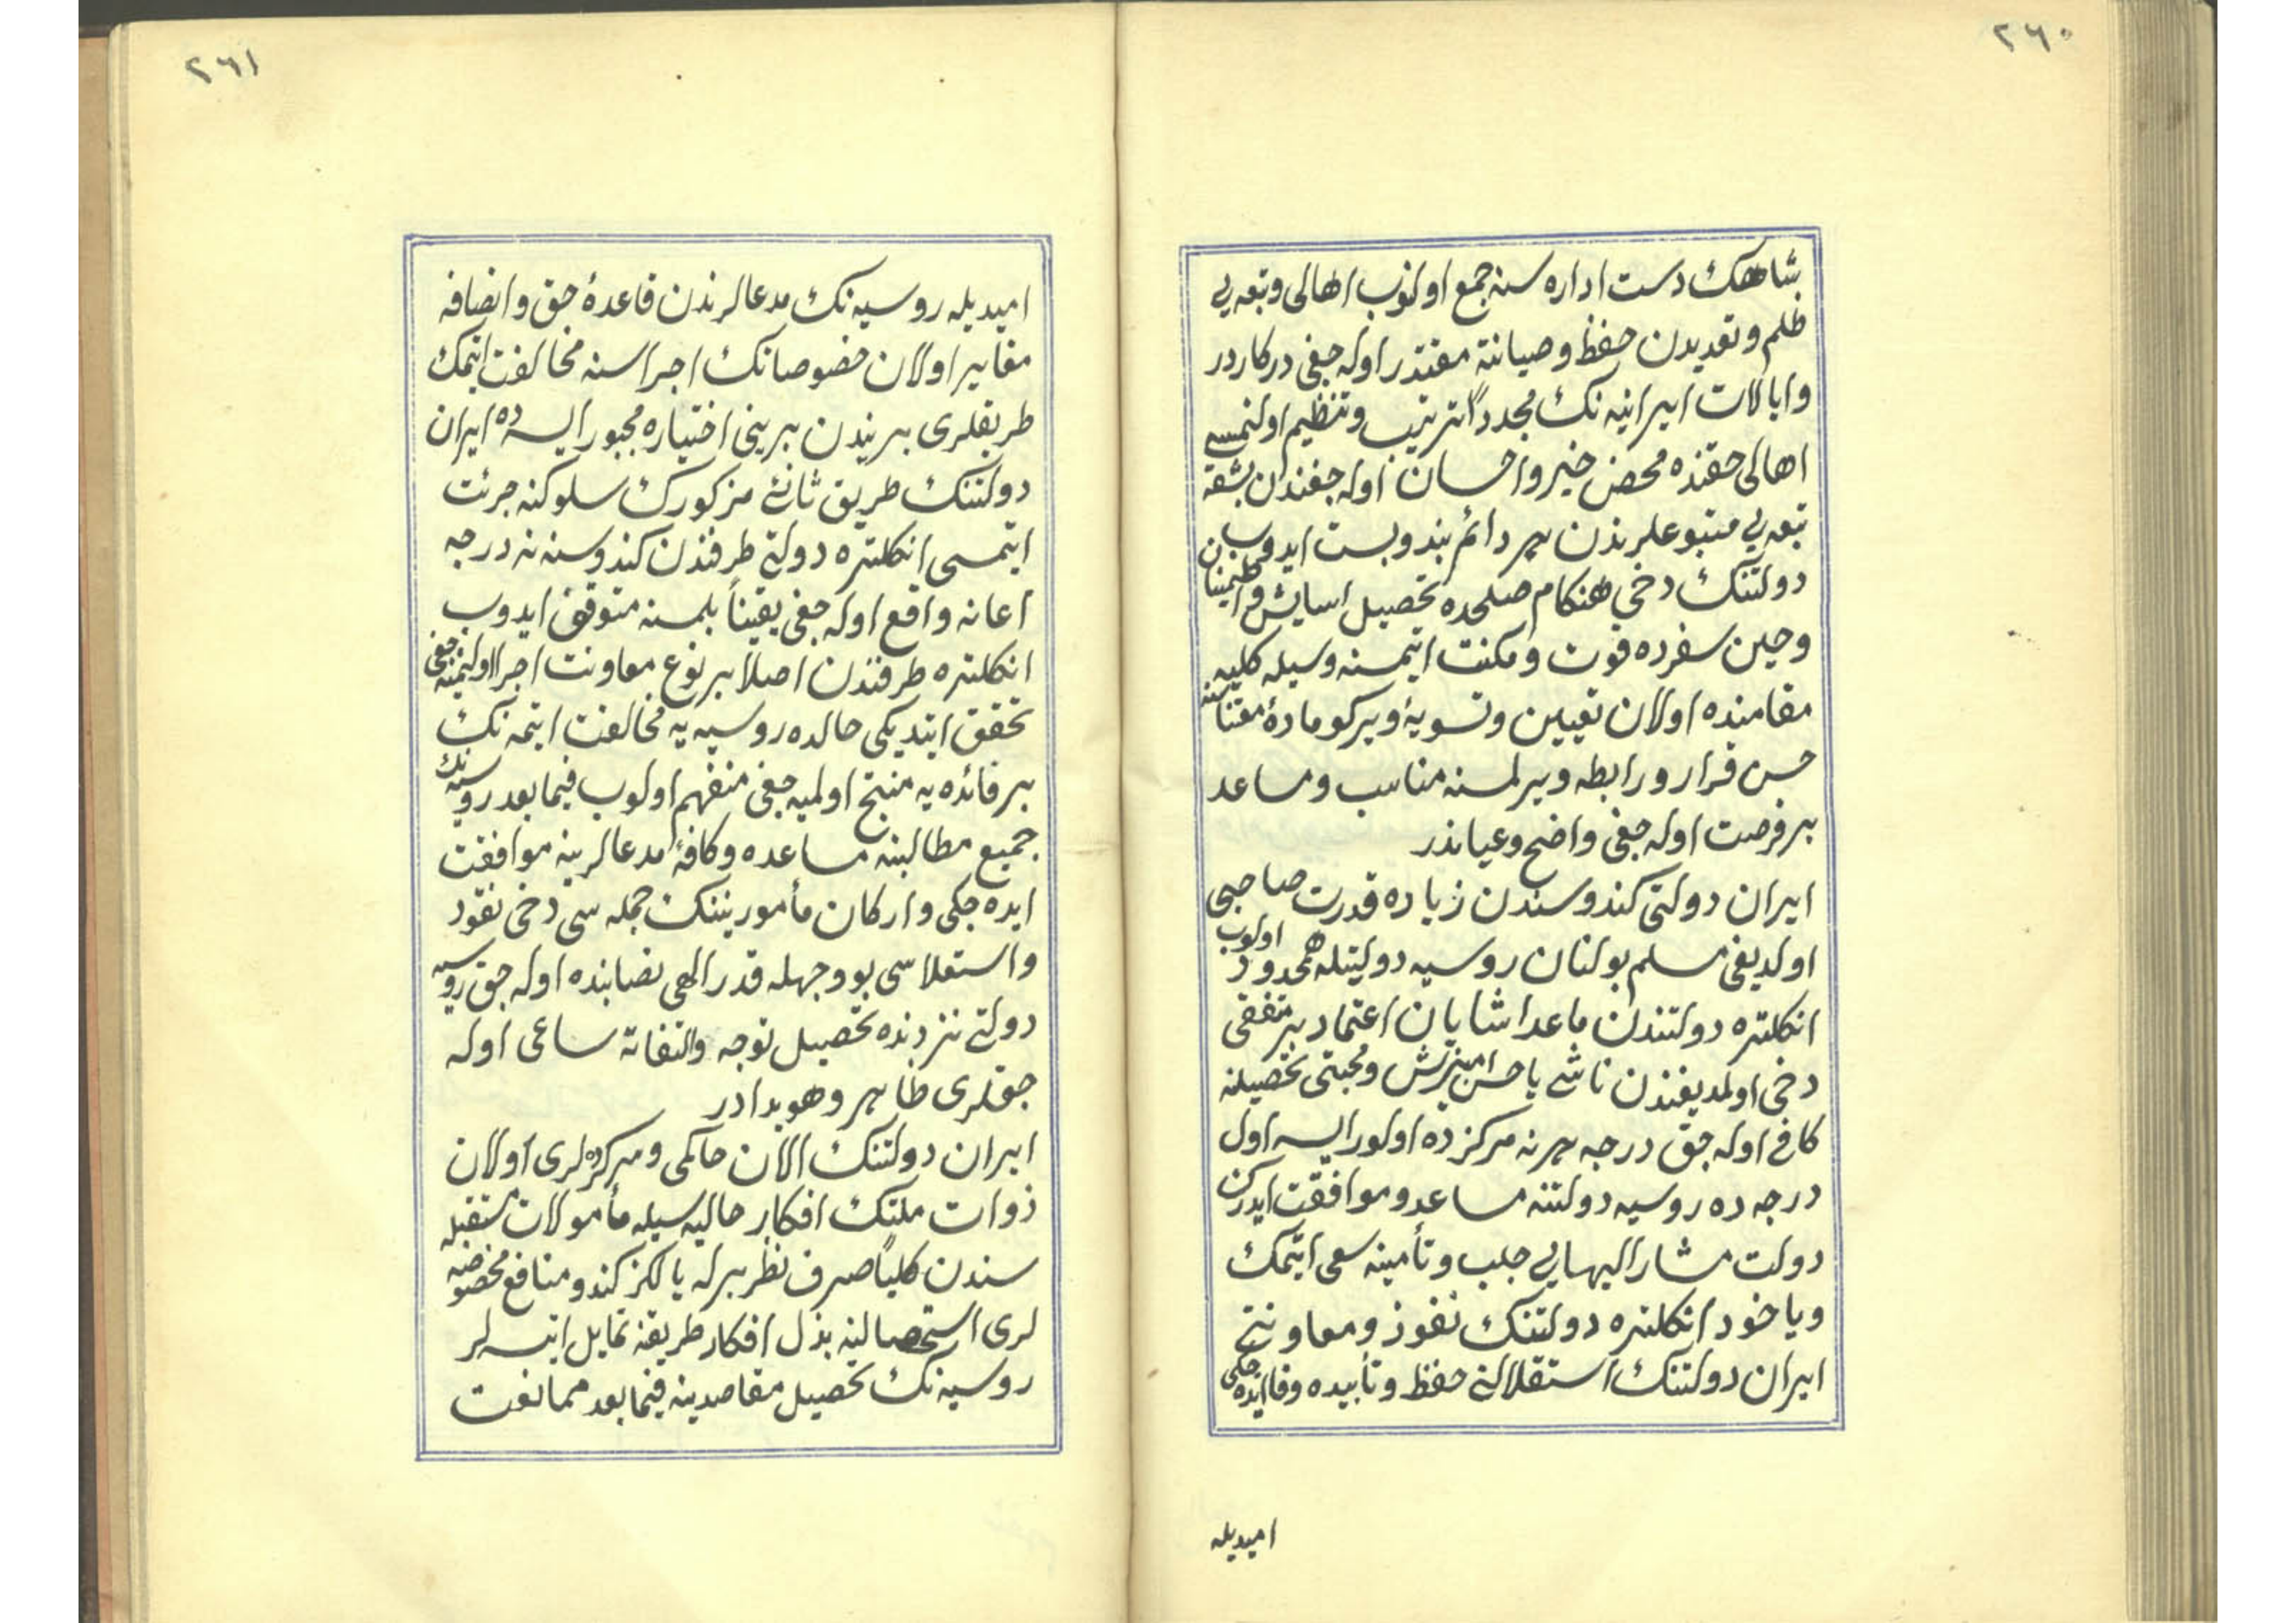 ٢٦٠
شاهك دست اداره سنه جمع اولنوب اهالی وتبعه یی
ظلم وتعدیدن حفظ وصیانته مقتدر اوله جغی درکاردر
وایالات ایرانیه نك مجدداً ترتیب وتنظیم اولنمسی
اهالی حقنده محض خیر واحسان اوله جغندن بشقه
تبعه یی متبوعلرندن هر دائم بند وبست ایدوب
دولتنك دخی هنكام صلحده تحصیل اسایش واطمینان
وحین سفرده قوت ومكنت ایتمسنه وسیله كلیه
مقامنده اولان تعیین وتسویۀ ویركو مادۀ معتناسنه
حسن قرار ورابطه ویرلمسنه مناسب ومساعد
بر فرصت اوله جغی واضح وعیاندر
ایران دولتی كندوسندن زیاده قدرت صاحبی
اولدیغی مسلم بولنان روسیه دولتیله همحدود اولوب
انكلتره دولتندن ماعدا شایان اعتماد بر متفقی
دخی اولمدیغندن ناشی یا حسن امیزش ومحبتی تحصیلنه
كافی اوله جق درجه هر نه مركزده اولور ایسه اول
درجه ده روسیه دولتنه مساعد وموافقت ایدرك
دولت مشار الیهایی جلب وتأمینه سعی ایتمك
ویاخود انكلتره دولتنك نفوذ ومعاونتی
ایران دولتنك استقلالنی حفظ وتأییده وفا ایده جكی
امیدیله
٢٦١
امیدیله روسیه نك مدعالرندن قاعدۀ حق وانصافه
مغایر اولان خصوصاتك اجراسنه مخالفت ایتمك
طریقلری بریندن برینی اختیاره مجبور ایسه ده ایران
دولتنك طریق ثانئ مذكورك سلوكنه جرئت
ایتمسی انكلتره دولتی طرفندن كندوسنه نه درجه
اعانه واقع اوله جغی یقیناً بلمسنه متوقف ایدوب
انكلتره طرفندن اصلا بر نوع معاونت اجرا اولنمیه جغی
تحقق ایتدیكی حالده روسیه یه مخالفت ایتمه نك
بر فائده یه منتج اولمیه جغی منفهم اولوب فیما بعد روسیه نك
جمیع مطالبنه مساعده وكافۀ مدعالرینه موافقت
ایده جكی واركان مأموریننك جمله سی دخی نفود
واستقلاسی بو وجهله قدر الهی نصابنده اوله جق روسیه
دولتی نزدنده تحصیل توجه والتفاته ساعی اوله
جقلری ظاهر وهویدادر
ایران دولتنك الان حاكمی وسركرده لری اولان
ذوات ملتك افكار حالیه سیله مأمولات مستقبله
سندن كلیاً صرف نظر برله یالكز كندو منافع مخصوصه
لری استحصالینه بذل افكار طریقنه تمایل ایتسه لر
روسیه نك تحصیل مقاصدینه فیما بعد ممانعت